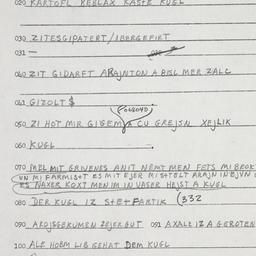 020 KARTOFL KEBLAX KASTE KUGL
030 ZITESGIPATERT / IBERGEFIRT
031 —
040 ZIT GIDARFT ARAJNTON A BISL MER ZALC
041 GIZOLT $
050 ZI HOT MIR GIGEM A CU GREJSN XEJLIK
060 KUGL
070 MEL MIT GRIVENES ANIT NEMT MEN FETS MI BROK
UN MI FARMIŠT ES MIT EJER MIŠTELT ARAJN IN EJVN
ES NAXER KOXT MEN IM IN VASER HEJST A KUGL
080 DER KUGL IZ ŠTEFARTIK (332
090 AROJSGEKUMEN ZEJER GUT 091 AXALE IZ A GEROTEN
100 ALE HOBM LIB GEHAT DEM KUGL